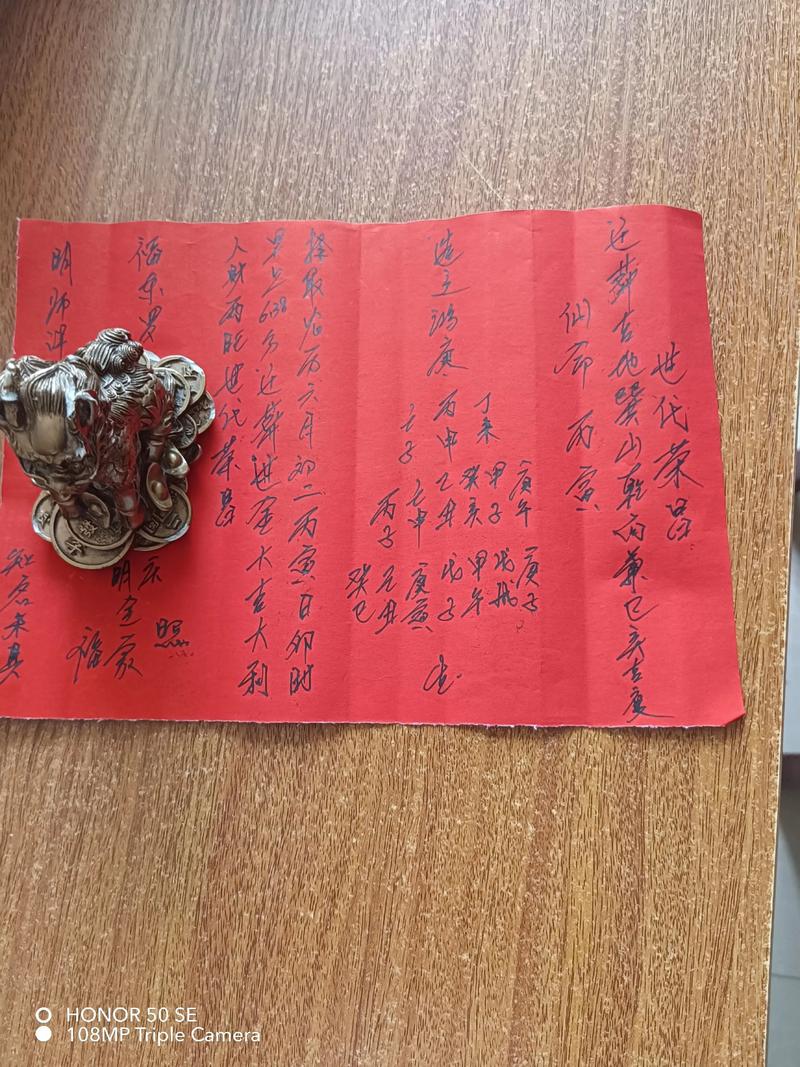 世代荣昌
迁葬吉地巽山乾向兼巳亥吉度
仙命 丙寅
庚午 庚子
甲子 戊戌
丁未 癸亥 甲午
造主鸿庚 丙申 乙丑 戊子
壬子 壬申 庚寅
丙子
癸巳
择取农历六月初二丙寅日卯时
早上6:38分迁葬进金大吉大利
人财两旺世代荣昌
福
明师
照
明
福
HONOR 50 SE
108MP Triple Camera